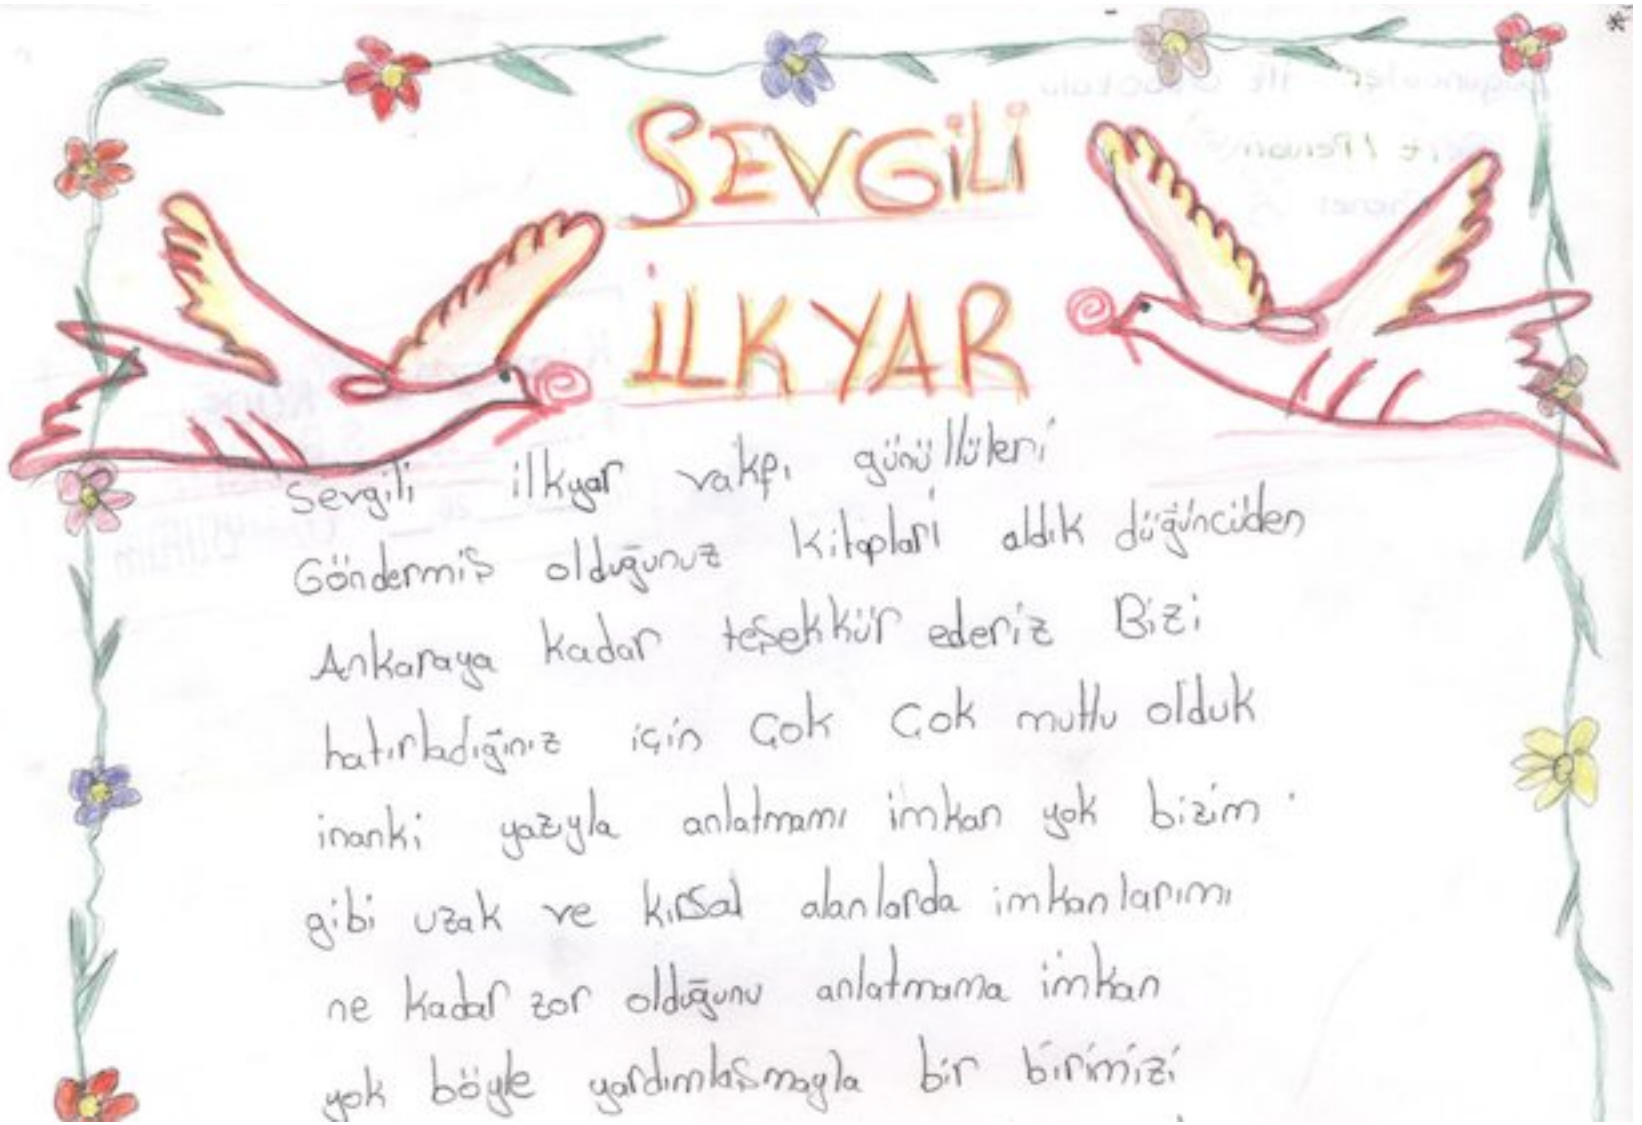 SEVGİLİ
İLKYAR
Sevgili ilkyar vakfı günüllüleri
Göndermiş olduğunuz kitapları aldık düğüncüden
Ankaraya kadar teşekkür ederiz Bizi
hatırladığınız için çok çok mutlu olduk
inanki yazıyla anlatmamı imkan yok bizim
gibi uzak ve kırsal alanlarda imkanlarımı
ne kadar zor olduğunu anlatmama imkan
yok böyle yardımlaşmayla bir birimizi